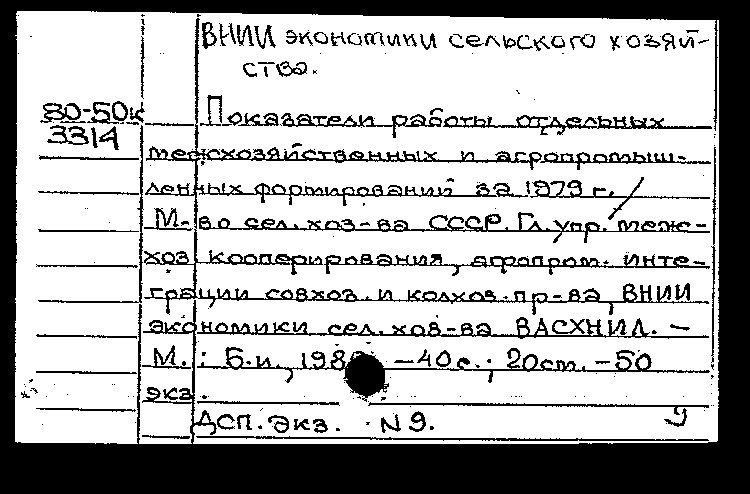 ВНИИ экономики сельского хозяй-
ства.
80-50к
3314
Показатели работы отдельных
межхозяйственных и агропромыш-
ленных формирований за 1979 г. /
М-во сел. хоз-ва СССР. Гл. упр. меж-
хоз. кооперирования, агропром. инте-
грации совхоз. и колхоз. пр-ва, ВНИИ
экономики сел. хоз-ва ВАСХНИЛ. –
М.: Б.и., 198 – 40 с.; 20 см. – 50
экз.
ДСП. Экз. N 9.